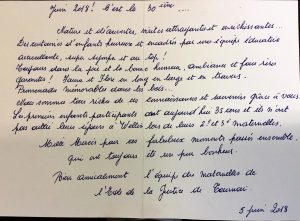 Juin 2018 ! C'est la 30 ème ....
Nature et découvertes, mixtes attrayantes et enrichissantes...
Des centaines d'enfants heureux et encadrés par une équipe éducative
accueillante, super sympa et au top !
Toujours dans la joie et la bonne humeur, ambiance et fous rires
garantis ! Faune et Flore en long en large et en travers.
Promenades mémorables dans les bois...
Nous sommes tous riches de ces connaissances et souvenirs grâce à vous.
Les premiers enfants participants ont aujourd'hui 35 ans et ils n'ont
pas oublié leur séjour à lors de leurs 2e et 3e maternelles.
Mille Mercis pour ces fabuleux moments passés ensemble
qui ont toujours été un pur bonheur.
Bien amicalement l'équipe des maternelles de
l'Ecole de la Justice de Tournai
5 juin 2018